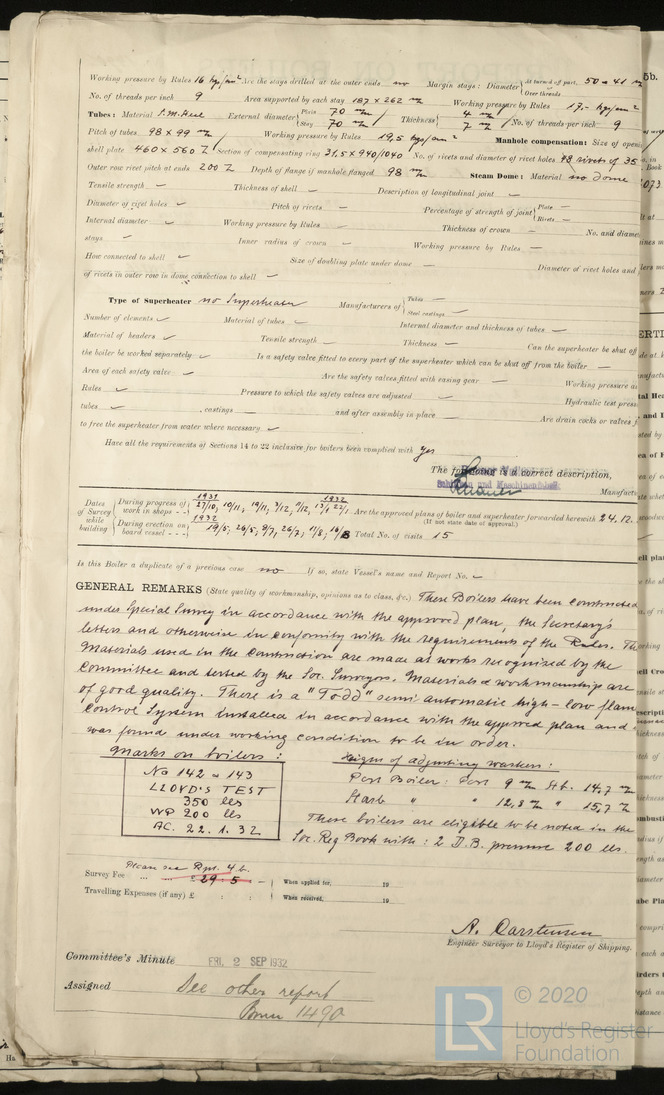 Working pressure by Rules 16 kgs/cm² Are the stays drilled at the outer ends no Margin stays: Diameter { At turned off part, 50 = 41 m/m Over threads
No. of threads per inch 9 Area supported by each stay 187 x 262 m/m Working pressure by Rules 17,- kgs/cm²
Tubes: Material S.M. Steel External diameter { Plain 70 m/m Stay 70 m/m Thickness { 4 m/m 7 m/m No. of threads per inch 9
Pitch of tubes 98 x 99 m/m Working pressure by Rules 19,5 kgs/cm² Manhole compensation: Size of openi
shell plate 460 x 560 Section of compensating ring 31,5 x 940/1040 No. of rivets and diameter of rivet holes 48 rivets of 35
Outer row rivet pitch at ends 200 Depth of flange if manhole flanged 98 m/m Steam Dome: Material no dome
Tensile strength Thickness of shell Description of longitudinal joint
Diameter of rivet holes Pitch of rivets Percentage of strength of joint { Plate Rivets
Internal diameter Working pressure by Rules Thickness of crown No. and diame
stays Inner radius of crown Working pressure by Rules
How connected to shell Size of doubling plate under dome Diameter of rivet holes and
of rivets in outer row in dome connection to shell
Type of Superheater no Superheater Manufacturers of { Tubes Steel castings
Number of elements Material of tubes Internal diameter and thickness of tubes
Material of headers Tensile strength Thickness Can the superheater be shut off
the boiler be worked separately Is a safety valve fitted to every part of the superheater which can be shut off from the boiler
Area of each safety valve Are the safety valves fitted with easing gear Working pressure a
Rules Pressure to which the safety valves are adjusted Hydraulic test press
tubes , castings and after assembly in place Are drain cocks or valves f
to free the superheater from water where necessary
Have all the requirements of Sections 14 to 22 inclusive for boilers been complied with yes
The foregoing is a correct description,
Schiffbau und Maschinenfabrik
Manufact
Dates of Survey while building { During progress of work in shops - - 1931 27/10, 10/11, 19/11, 3/12, 9/12, 1932 13/1 22/1 Are the approved plans of boiler and superheater forwarded herewith 24.12.
(If not state date of approval.)
During erection on board vessel - - - 1932 19/5, 26/5, 9/7, 26/7, 11/8, 16/8 Total No. of visits 15
Is this Boiler a duplicate of a previous case no If so, state Vessel's name and Report No.
GENERAL REMARKS (State quality of workmanship, opinions as to class, &c.) These Boilers have been constructed
under Special Survey in accordance with the approved plan, the Secretary's
letters and otherwise in conformity with the requirements of the Rules. The
Materials used in the construction are made at works recognized by the
Committee and tested by the Soc. Surveyors. Materials & workmanship are
of good quality. There is a "Todd" semi automatic high-low flam
control System installed in accordance with the approved plan and
was found under working condition to be in order.
Marks on boilers :
No 142 = 143
LLOYD'S TEST
350 lbs
WP 200 lbs
AC. 22.1.32
of adjusting washers :
Port Boiler : Port 9 m/m Stb. 14,7 m/m
Starb " " 12,8 m/m " 15,7 m/m
These boilers are eligible to be noted in the
Soc. Reg Book with : 2 D.B. pressure 200 lbs.
Please see Rpt. 4b.
Survey Fee ... ... £ 29 : 5 : When applied for, 19
Travelling Expenses (if any) £ : : When received, 19
A. Carstensen
Engineer Surveyor to Lloyd's Register of Shipping.
Committee's Minute FRI. 2 SEP 1932
Assigned See other report
1490
© 2020
Lloyd's Register
Foundation